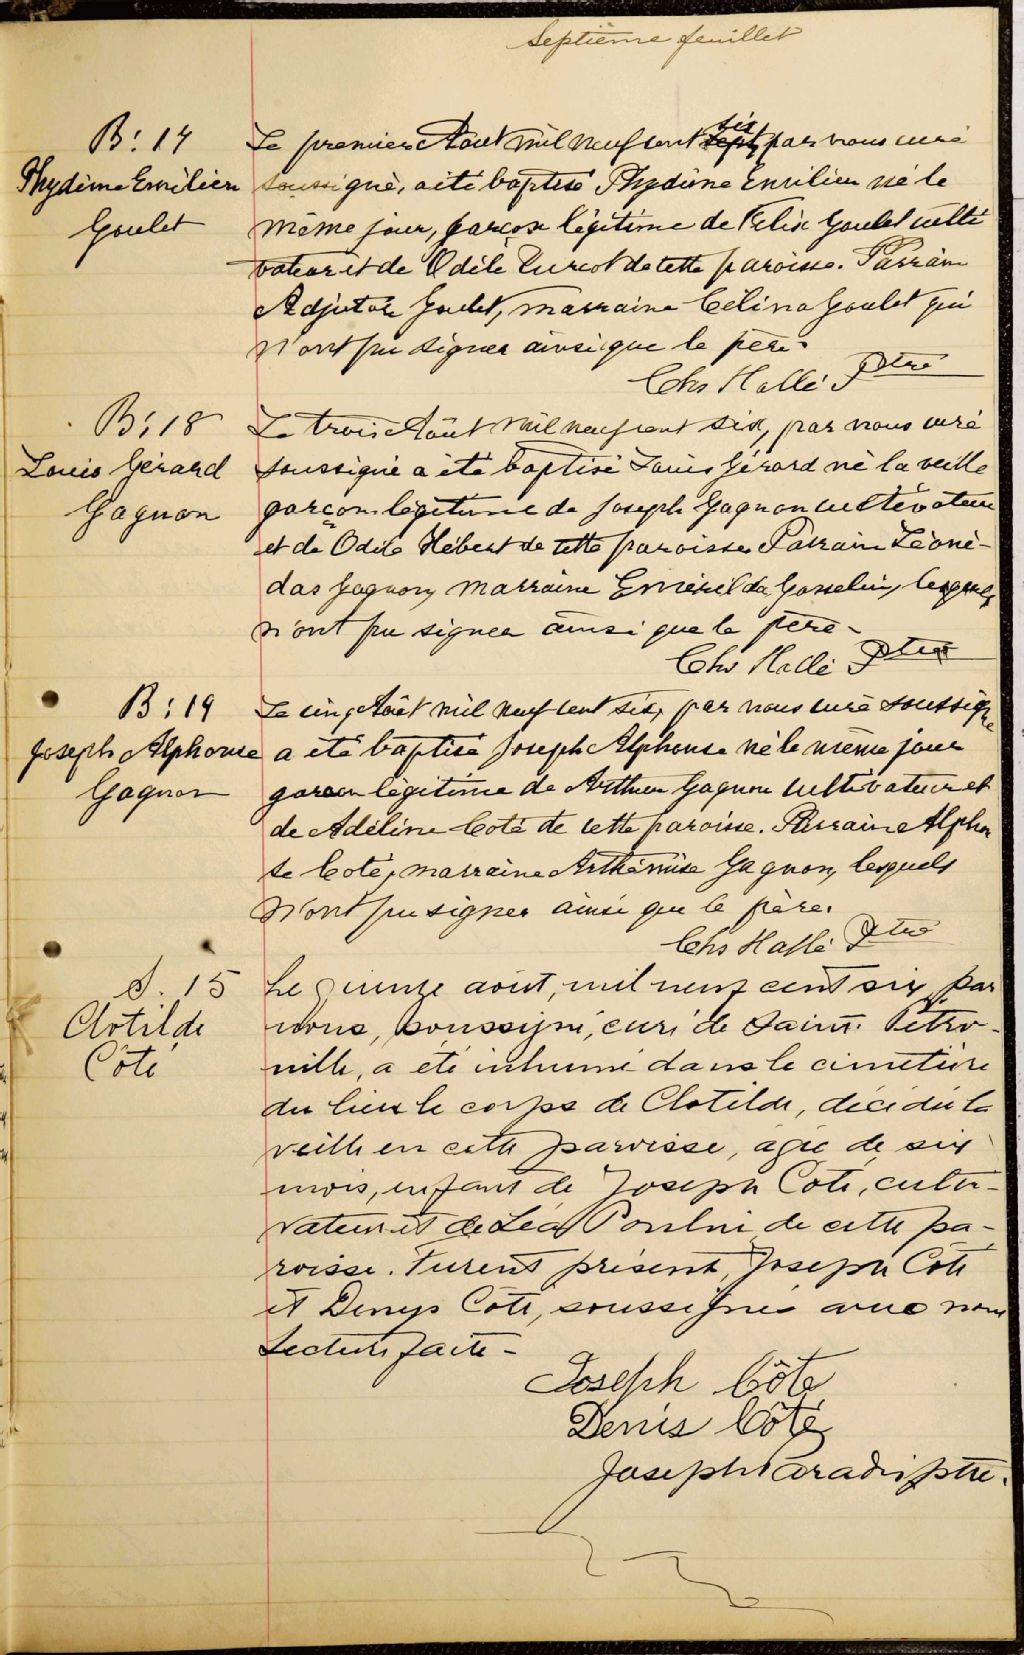 Septième feuillet
B: 17
Thydime Emilien
Goulet
Le premier Août mil neuf cent sept six, par nous curé
soussigné, a été baptisé Thydime Emilien né le
même jour, garçon légitime de Félix Goulet culti
vateur et de Odile Turcot de cette paroisse. Parrain
Adjutor Goulet, marraine Célina Goulet qui
n'ont pu signer ainsi que le père.
Chs Hallé Ptre
B: 18
Louis Gérard
Gagnon
Le trois Août mil neuf cent six, par nous curé
soussigné a été baptisé Louis Gérard né la veille
garçon légitime de Joseph Gagnon cultivateur
et de Odile Hébert de cette paroisse. Parrain Léoni-
das Gagnon, marraine Emérilda Gosselin, lesquels
n'ont pu signer ainsi que le père -
Chs Hallé Ptre
B: 19
Joseph Alphonse
Gagnon
Le cinq Août mil neuf cent six, par nous curé soussigné
a été baptisé Joseph Alphonse né le même jour
garçon légitime de Arthur Gagnon cultivateur et
de Adéline Coté de cette paroisse. Parrain Alphon
se Coté, marraine Arthémise Gagnon, lesquels
n'ont pu signer ainsi que le père.
Chs Hallé Ptre
S. 15
Clotilde
Côté
Le quinze août, mil neuf cent six, par
nous, soussigné, curé de Saint Pétro-
nille, a été inhumé dans le cimetière
du lieu le corps de Clotilde, décédée la
veille en cette paroisse, agée de six
mois, enfant de Joseph Côté, culti-
vateur et de Léa Poulin de cette pa-
roisse. Furent présent, Joseph Côté
et Denys Côté, soussignés avec nous
Lecture faite -
Joseph Côté
Denis Côté
Joseph Paradis ptre.